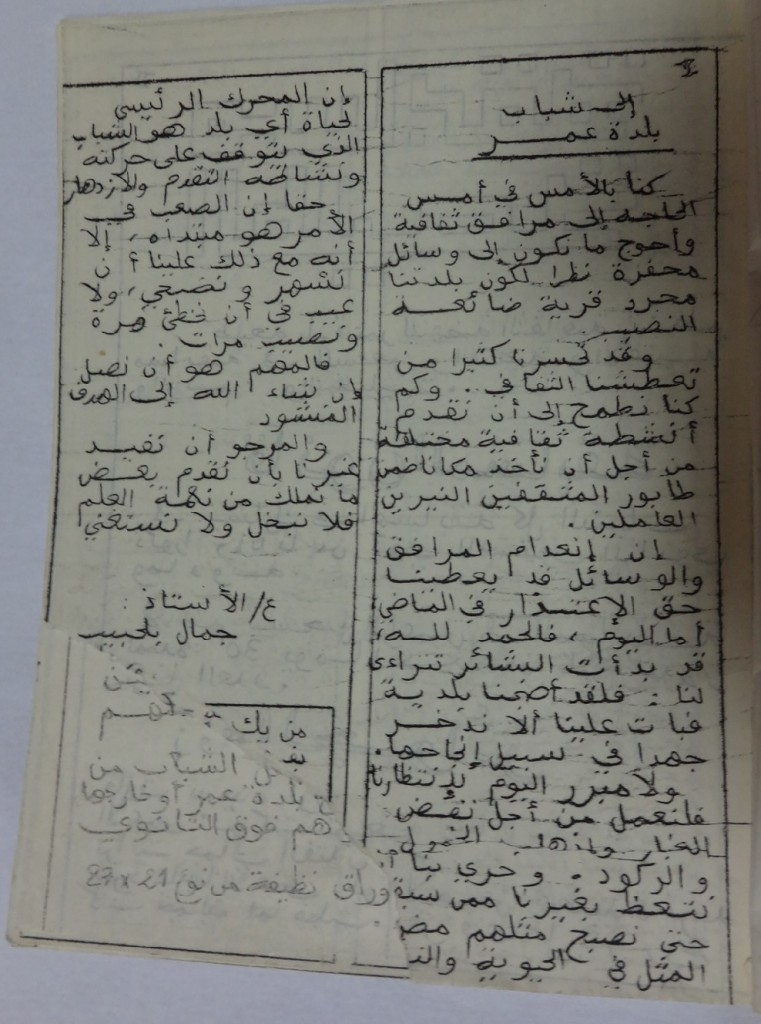 إلى شباب
بلدة عمر
كنا بالأمس في أمس
الحاجة إلى مرافق ثقافية
وأحوج ما نكون إلى وسائل
محفزة نظرا لكون بلدتنا
مجرد قرية ضائعة
النصيب.
وقد خسرنا كثيرا من
تعطشنا الثقافي. وكم
كنا نطمح إلى أن نقدم
أنشطة ثقافية مختلفة
من أجل أن نأخذ مكانا ضمن
طابور المثقفين النيرين
العاملين.
إن إنعدام المرافق
والوسائل قد يعطينا
حق الإعتذار في الماضي
أما اليوم، فالحمد لله،
قد بدأت البشائر تتراءى
لنا: فلقد أصبحنا بلدية
فبات علينا ألا ندخر
جهدا في سبيل إنجاحها.
ولا مبرر اليوم لإنتظارنا
فلنعمل من أجل نفض
الغبار وإذهاب الخمول
والركود. وحري بنا أن
نتعظ بغيرنا ممن سبقو
حتى نصبح مثلهم مضر
المثل في الحيوية والنـ
إن المحرك الرئيسي
لحياة أي بلد هو الشباب
الذي تتوقف على حركته
ونشاطه التقدم والازدهار
حقا إن الصعب في
الأمر هو مبتداه، إلا
أنه مع ذلك علينا أن
نسهر ونضحي، ولا
عيب في أن نخطئ مرة
ونصيب مرات.
فالمهم هو أن نصل
إن شاء الله إلى الهدف
المنشود
والمرجو أن نفيد
غيرنا بأن نقدم بعض
ما نملك من نعمة العلم
فلا نبخل ولا نستغني
ع/الأستاذ:
جمال بلحبيب
من يك
الشباب من
بلدة عمر أو خارجها
هم فوق الثانوي
وراق نظيفة من نوع 21 x 27